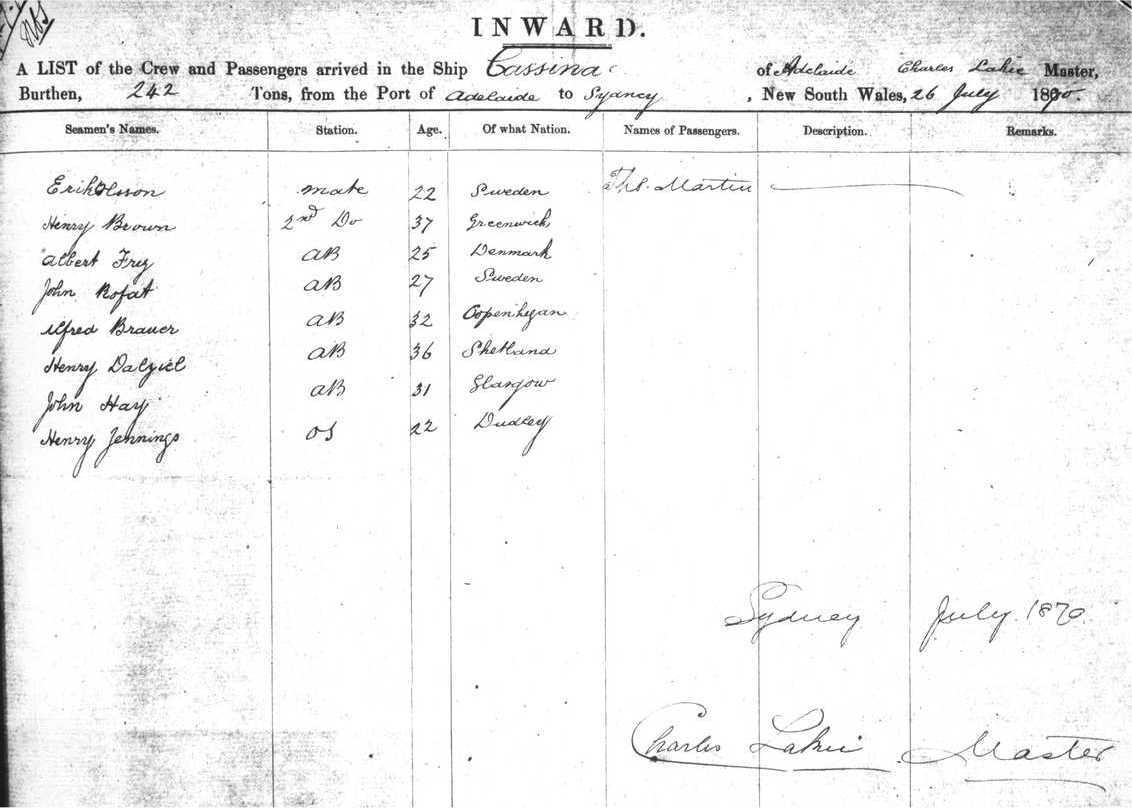 INWARD.
A LIST of the Crew and Passengers arrived in the Ship Cassina of Adelaide Charles Lakie Master,
Burthen, 242 Tons, from the Port of Adelaide to Sydney, New South Wales, 26 July 1870.
Seamen's Names. Station. Age. Of what Nation. Names of Passengers. Description. Remarks.
Erik Olsson mate 22 Sweden Thos. Martin
Henry Brown 2nd Do 37 Greenwich
Albert Frey AB 25 Denmark
John Rofat AB 27 Sweden
Alfred Brauer AB 32 Copenhegan
Henry Dalziel AB 36 Shetland
John Hay AB 31 Glasgow
Henry Jennings OS 22 Dudley
Sydney July. 1870.
Charles Lakie Master